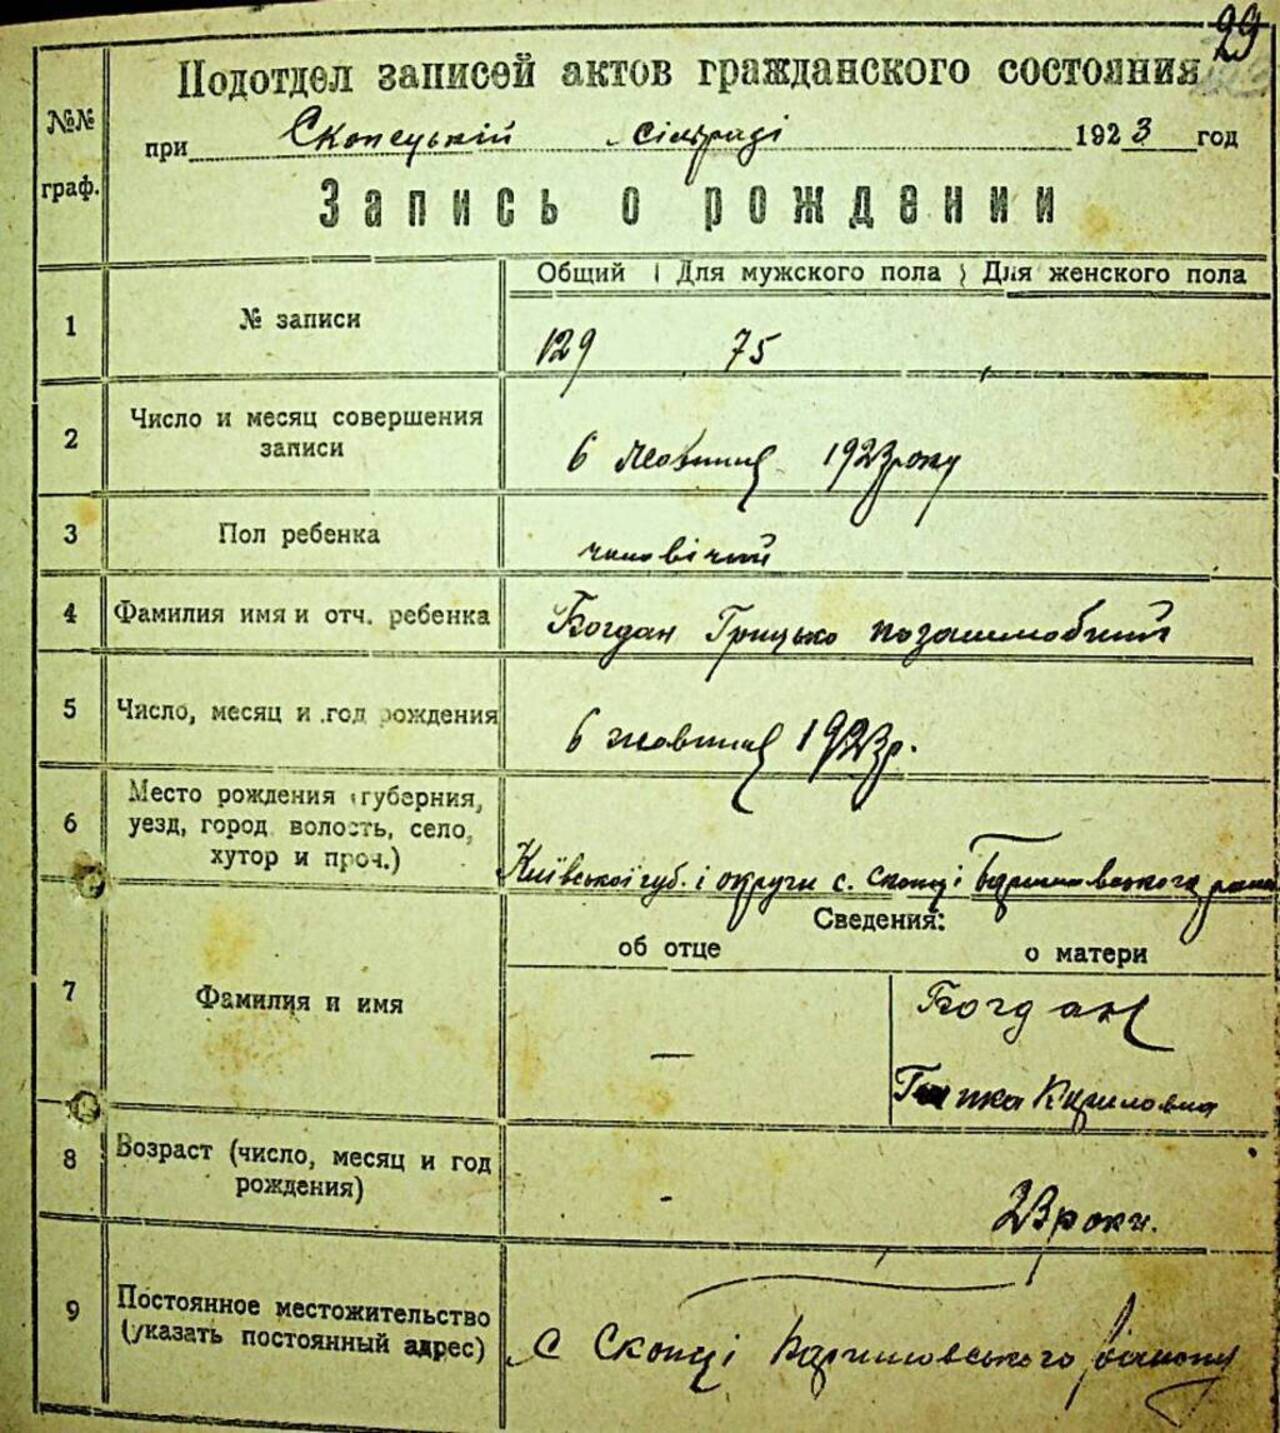 29
Подотдел записей актов гражданского состояния
№№ граф.
при Скопецькій сільраді 1923 год
Запись о рождении
Общий Для мужского пола Для женского пола
1 № записи 129 75
2 Число и месяц совершения записи 6 жовтня 1923 року
3 Пол ребенка чоловічий
4 Фамилия имя и отч. ребенка Богдан Грицько позашлюбний
5 Число, месяц и год рождения 6 жовтня 1923 р.
6 Место рождения (губерния,
уезд, город волость, село,
хутор и проч.)
Київської губ. і округи с. Скопці Баришовського району
Сведения:
об отце о матери
7 Фамилия и имя — Богдан
Кириловна
8 Возраст (число, месяц и год
рождения) - 23 роки.
9 Постоянное местожительство
(указать постоянный адрес) С Скопці Баришовського району